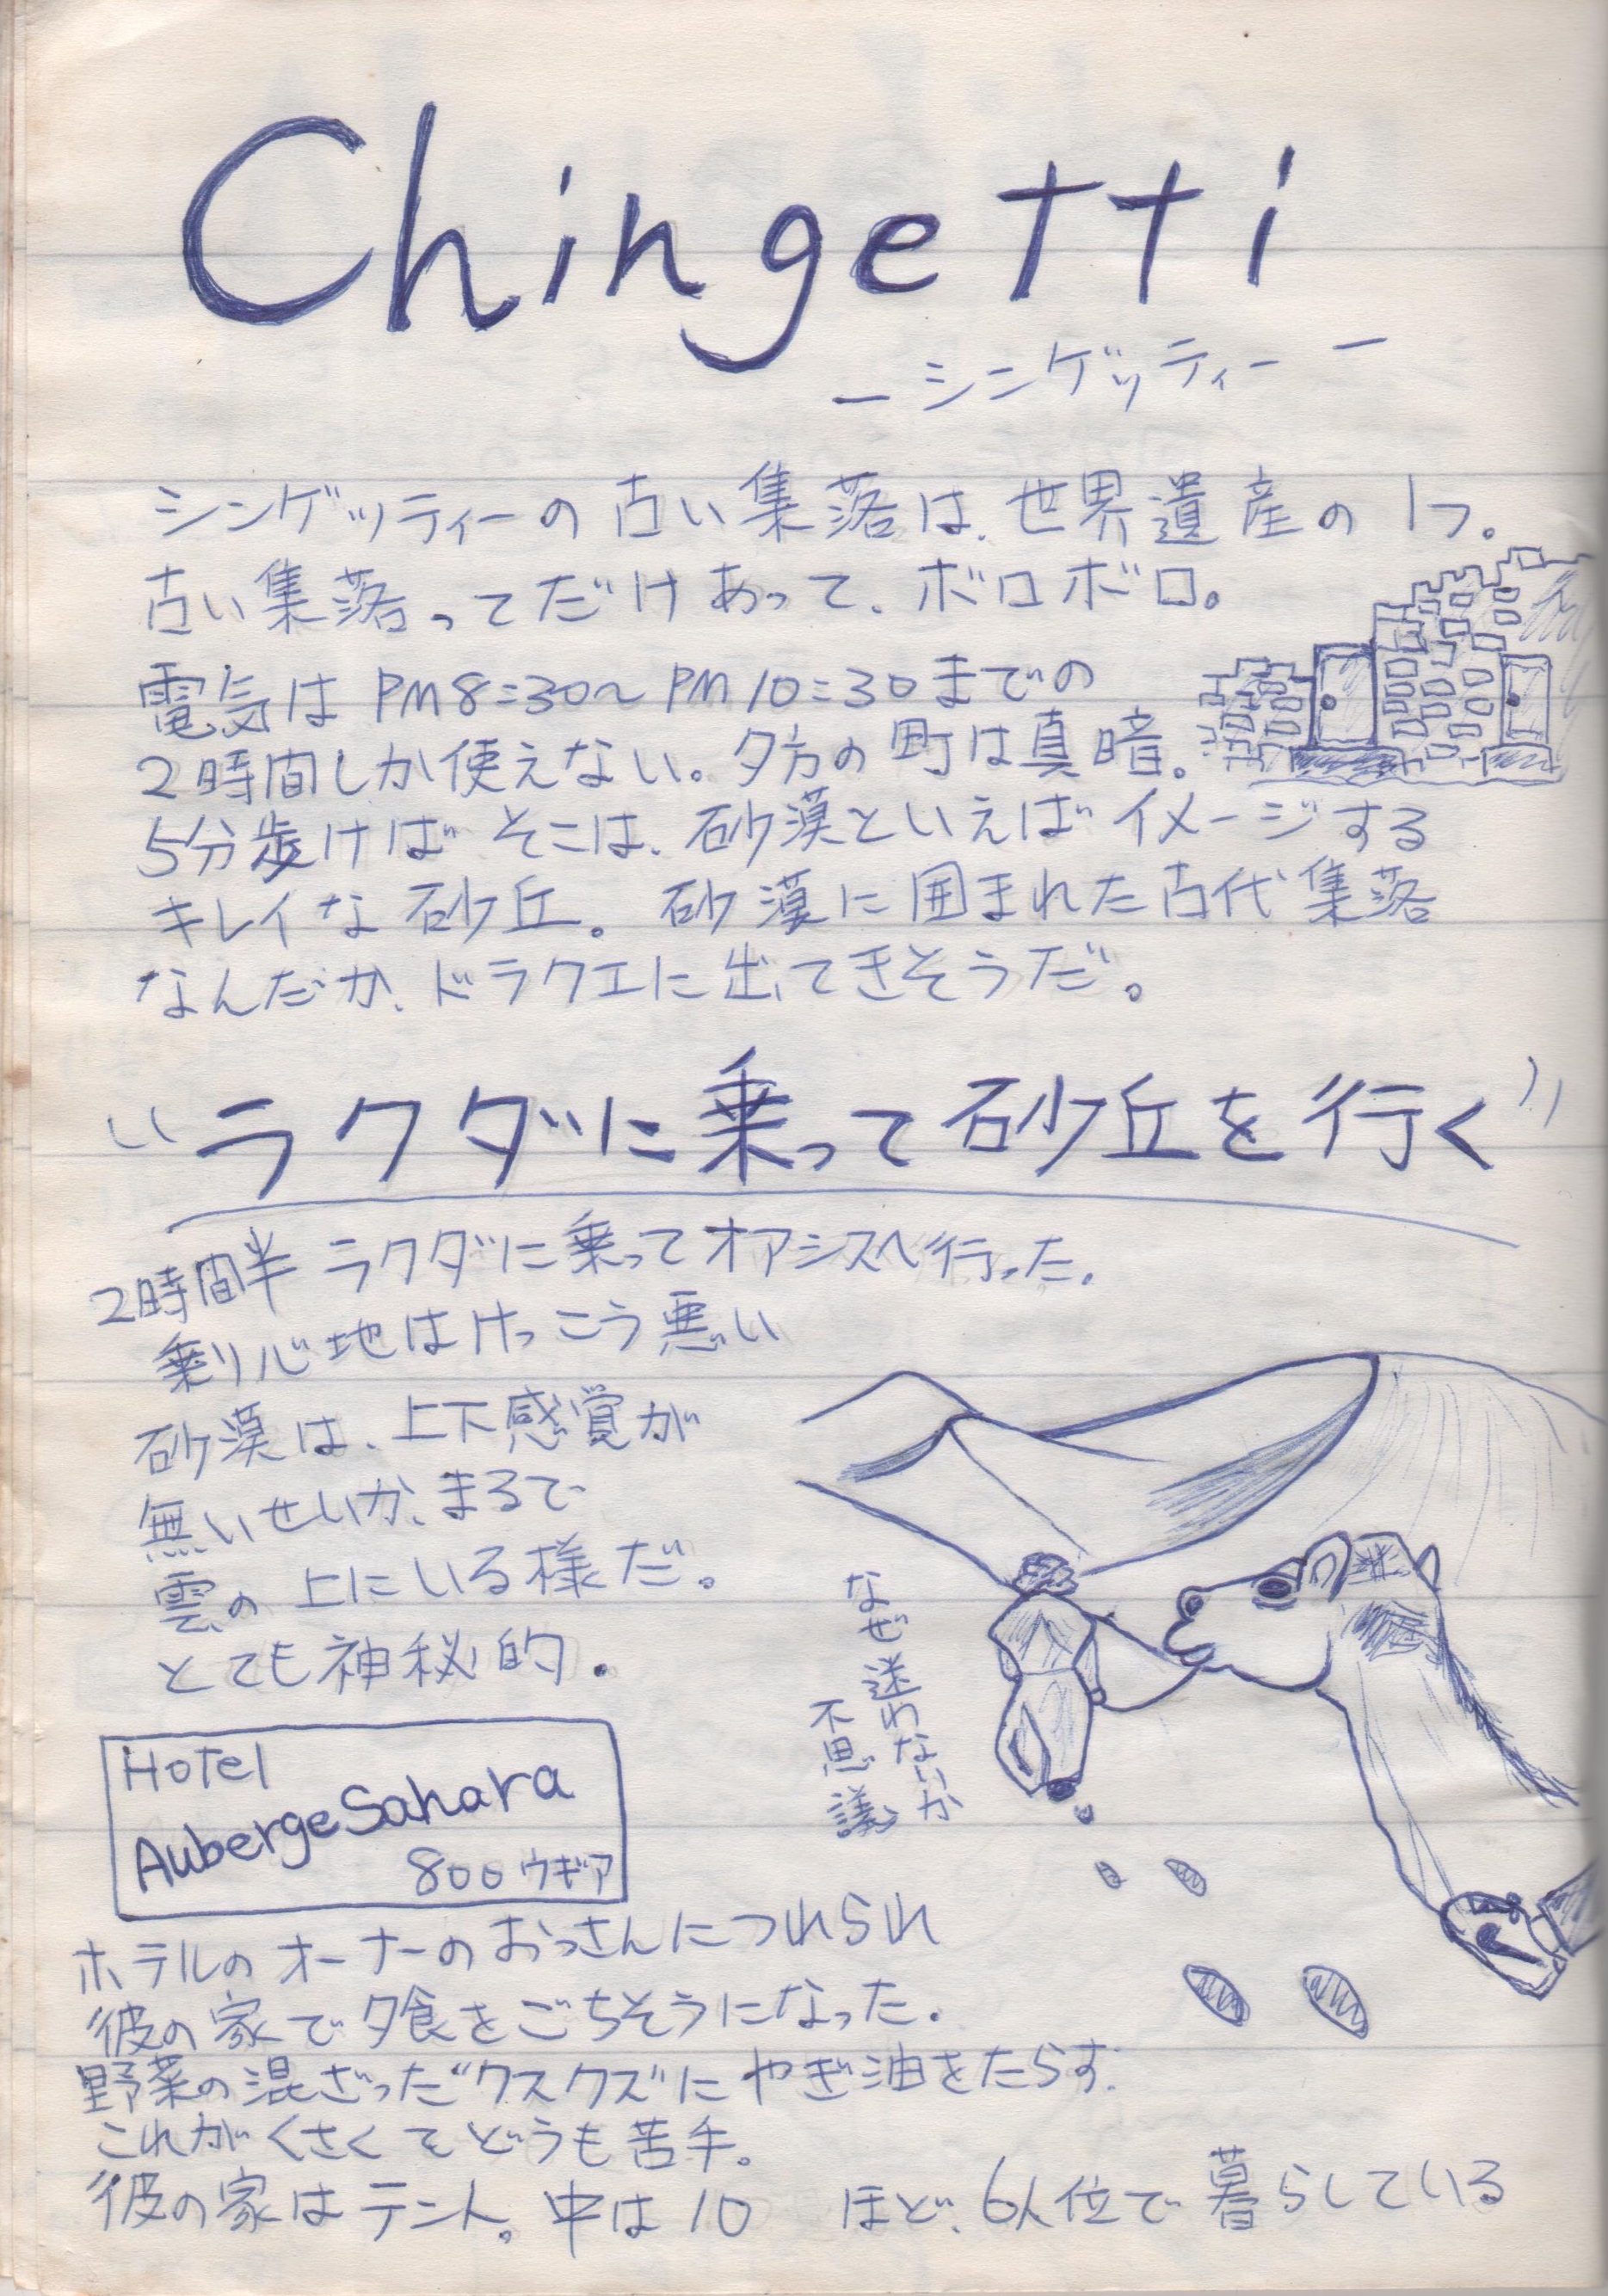 Chingetti
ーシンゲッティーー
シンゲッティーの古い集落は、世界遺産の1つ。
古い集落ってだけあって、ボロボロ。
電気はPM8:30〜PM10:30までの
2時間しか使えない。夕方の町は真暗。
5分歩けばそこは、砂漠といえばイメージする
キレイな砂丘。砂漠に囲まれた古代集落
なんだか、ドラクエに出てきそうだ。
“ラクダに乗って砂丘を行く”
2時間半ラクダに乗ってオアシスへ行った。
乗り心地はけっこう悪い
砂漠は、上下感覚が
無いせいか、まるで
雲の上にいる様だ。
とても神秘的。
なぜ迷わないか
不思議
Hotel
Auberge Sahara
800ウギア
ホテルのオーナーのおっさんにつれられ
彼の家で夕食をごちそうになった。
野菜の混ざった“クスクス”にやぎ油をたらす。
これがくさくてどうも苦手。
彼の家はテント。中は10 ほど、6人位で暮らしている